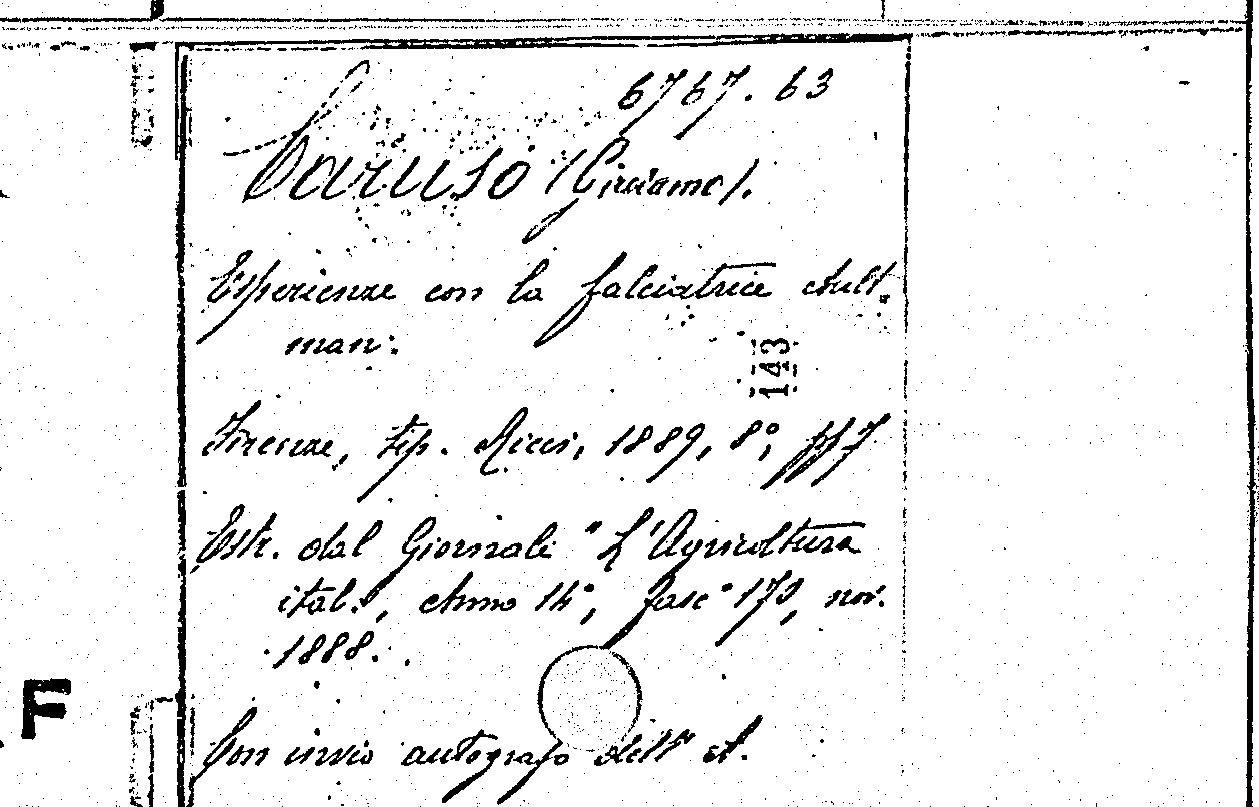 6767.63
Caruso (Girolamo).
Esperienze con la falciatrice Ault-
man.
143
Firenze, tip. Ricci, 1889, 8°, pp. 7
Estr. dal Giornale "L'Agricoltura
ital.", Anno 14°, fasc° 173, nov.
1888.
F
Con invio autografo dell' A.